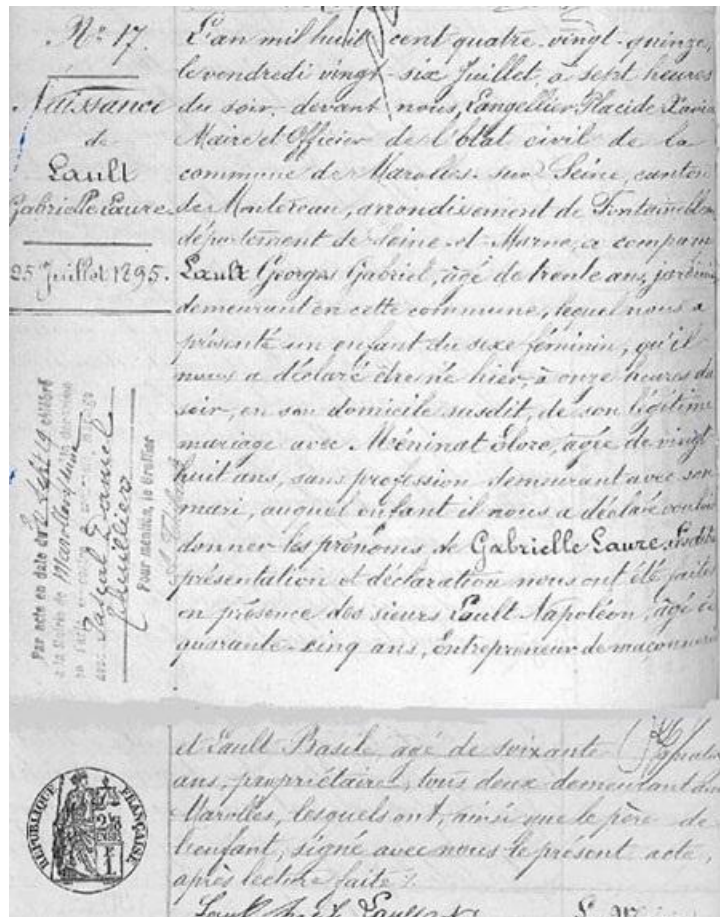 N° 17.
Naissance
de
Lault
Gabrielle Laure
25 Juillet 1895.
Par acte en date du 2 Sept 19
à la Mairie de Marolles s/Seine
avec Pascal Daniel
Lhuillier
Pour mention, le Greffier
L'an mil huit cent quatre-vingt-quinze,
le vendredi vingt-six Juillet, à sept heures
du soir, devant nous, Langellier Placide
Maire et Officier de l'état civil de la
commune de Marolles-sur-Seine, canton
de Montereau, arrondissement de Fontainebleau
département de Seine-et-Marne, a comparu
Lault Georges Gabriel, âgé de trente ans, jardinier
demeurant en cette commune, lequel nous a
présenté un enfant du sexe féminin, qu'il
nous a déclaré être né hier, à onze heures du
soir, en son domicile susdit, de son légitime
mariage avec Méninat Flore, âgée de vingt
huit ans, sans profession demeurant avec son
mari, auquel enfant il nous a déclaré vouloir
donner les prénoms de Gabrielle Laure. Lesdites
présentation et déclaration nous ont été faites
en présence des sieurs Lault Napoléon, âgé de
quarante-cinq ans, Entrepreneur de maçonnerie
et Lault Basile, âgé de soixante
ans, propriétaire, tous deux demeurant à
Marolles, lesquels ont, ainsi que le père de
l'enfant, signé avec nous le présent acte,
après lecture faite.
RÉPUBLIQUE FRANÇAISE